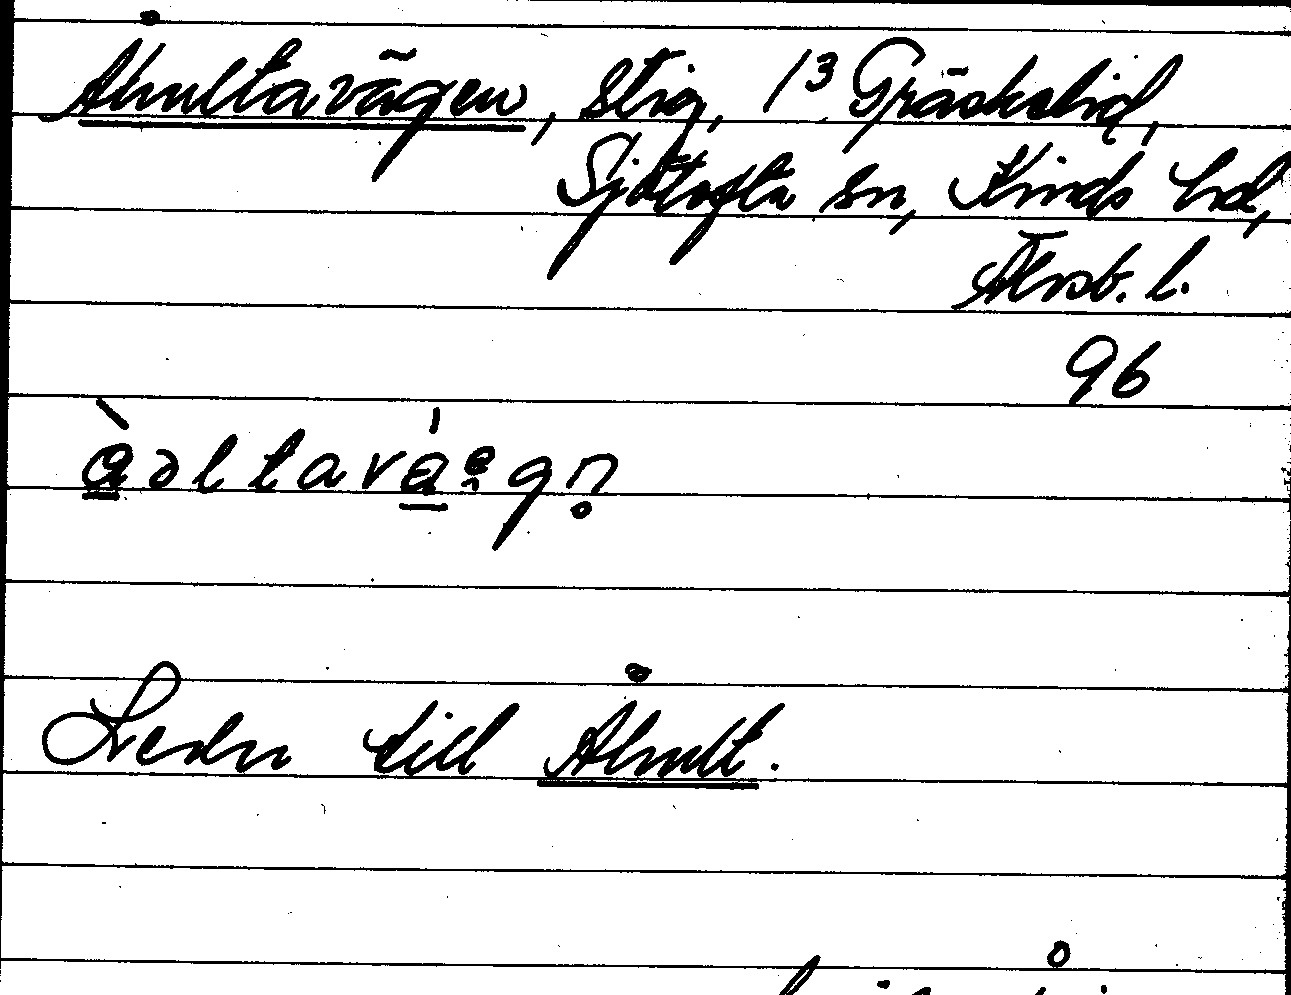 Åhultavägen, Stig, 1³ Gräskelid,
Sjötofta sn, Kinds hd,
Älvsb. l.
96
Leder till Åhult.